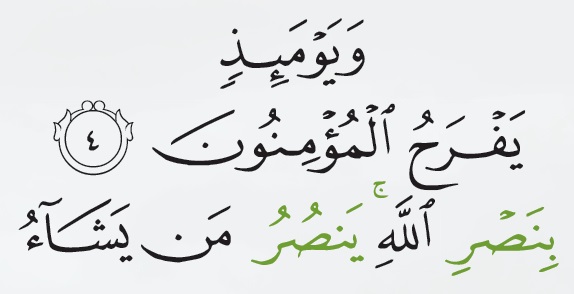 وَيَوْمَئِذٍ
يَفْرَحُ ٱلْمُؤْمِنُونَ ٤
بِنَصْرِ ٱللَّهِ ۚ يَنصُرُ مَن يَشَآءُ